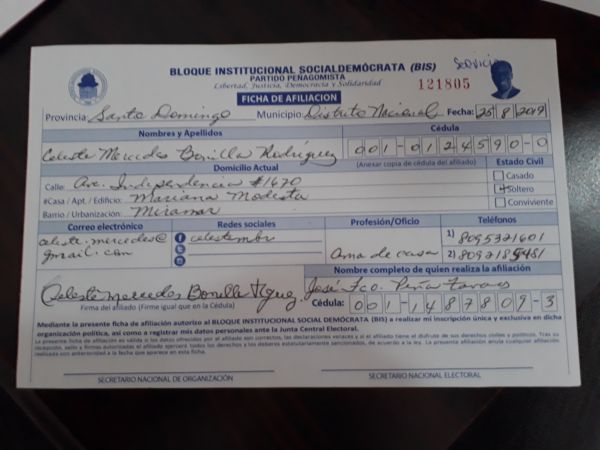 BLOQUE INSTITUCIONAL SOCIALDEMÓCRATA (BIS)
Servicio
PARTIDO PEÑAGOMISTA
Libertad, Justicia, Democracia y Solidaridad
121805
FICHA DE AFILIACION
Provincia: Santo Domingo Municipio: Distrito Nacional Fecha: 25/8/2019
Nombres y Apellidos Cédula
Celeste Mercedes Bonilla Rodríguez 001-0124590-0
Domicilio Actual (Anexar copia de cédula del afiliado) Estado Civil
Calle: Ave. Independencia #1670 Casado
#Casa / Apt. / Edificio: Mariana Modesta Soltero
Barrio / Urbanización: Miramar Conviviente
Correo electrónico Redes sociales Profesión/Oficio Teléfonos
celeste.mercedes@ celestembr 1) 8095321601
gmail.com Ama de casa 2)
Nombre completo de quien realiza la afiliación
Celeste Mercedes Bonilla José Fco. Peña
Firma del afiliado (Firme igual que en la Cédula) Cédula: 001-1487809-3
Mediante la presente ficha de afiliación autorizo al BLOQUE INSTITUCIONAL SOCIAL DEMÓCRATA (BIS) a realizar mi inscripción única y exclusiva en dicha
organización política, así como a registrar mis datos personales ante la Junta Central Electoral.
La presente ficha de afiliación es válida si los datos ofrecidos por el afiliado son correctos, las declaraciones veraces y si el afiliado tiene el disfrute de sus derechos civiles y políticos. Tras su
recepción, sello y firmas autorizadas el afiliado tendrá todos los derechos y los deberes estatutariamente sancionados, de acuerdo a la ley. La presente afiliación anula cualquier afiliación
realizada con anterioridad a la fecha que aparece en esta ficha.
SECRETARIO NACIONAL DE ORGANIZACIÓN SECRETARIO NACIONAL ELECTORAL